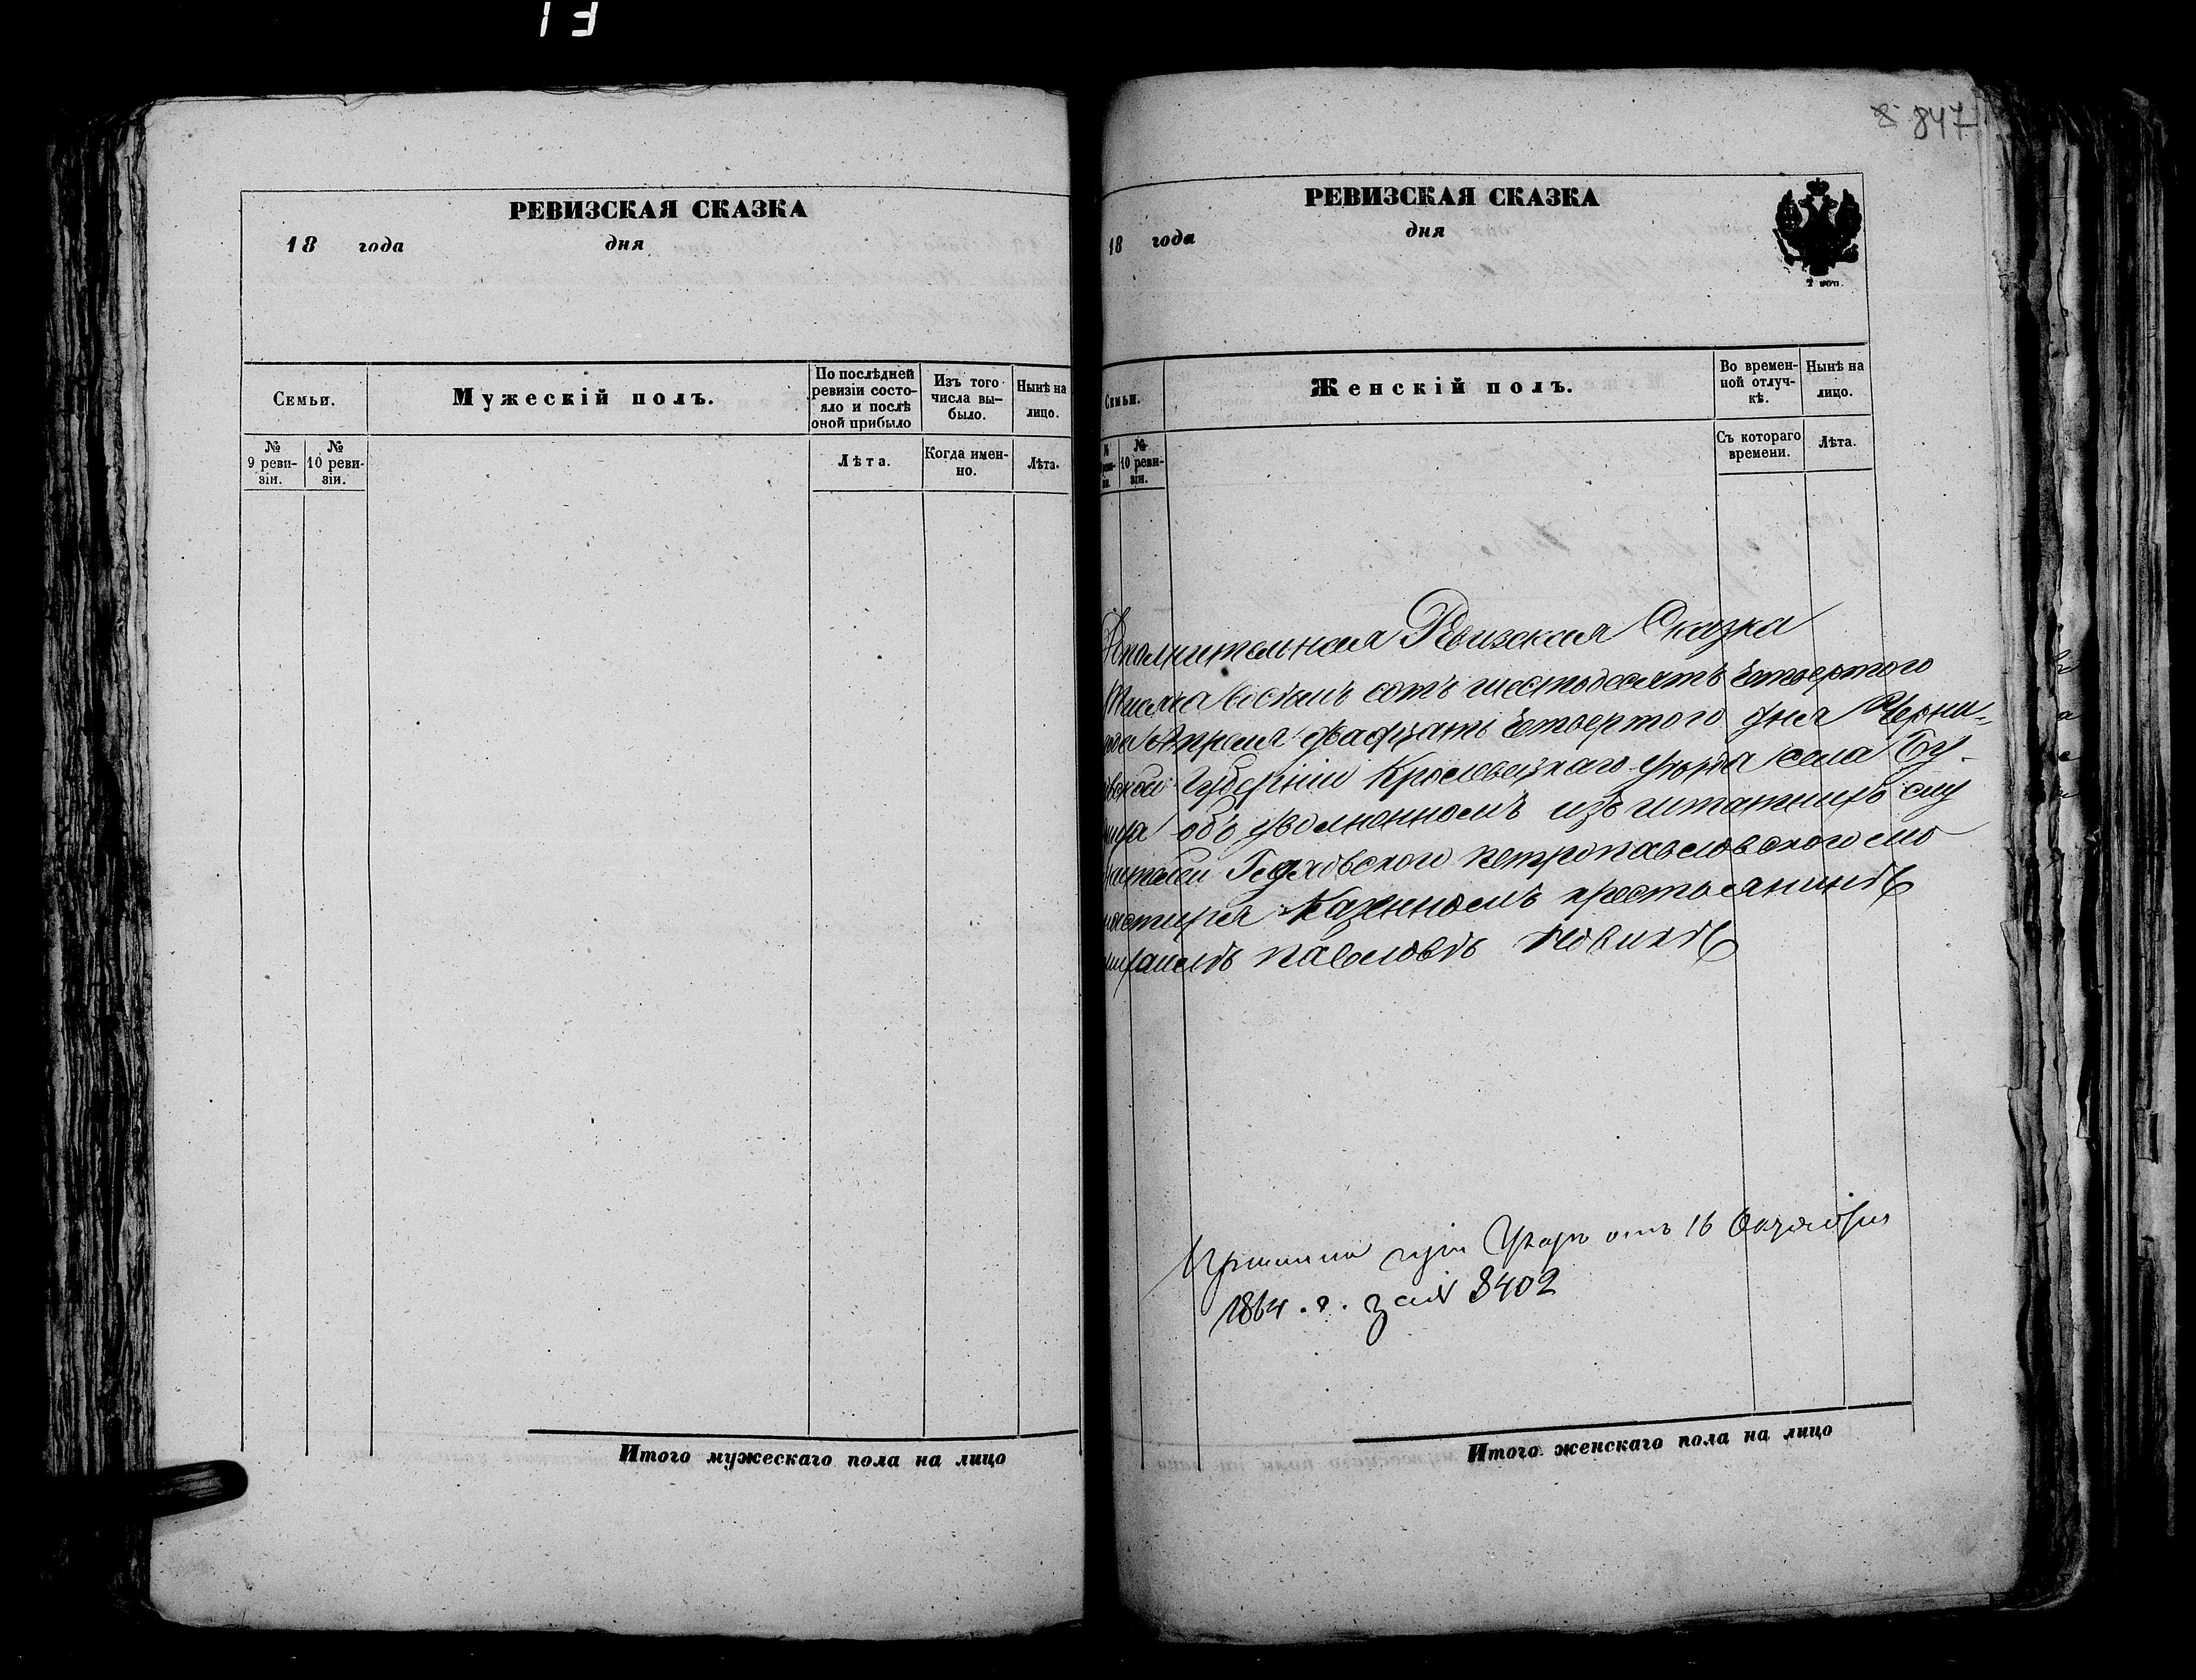 13
8 847
РЕВИЗСКАЯ СКАЗКА
18 года дня
Семьи.
Мужескій полъ.
По послѣдней ревизіи состояло и послѣ оной прибыло
Изъ того числа выбыло.
Нынѣ на лицо.
№ 9 ревизіи.
№ 10 ревизіи.
Лѣта.
Когда именно.
Лѣта.
Итого мужескаго пола на лицо
РЕВИЗСКАЯ СКАЗКА
18 года дня
2 коп.
Семьи.
Женскій полъ.
Во временной отлучкѣ.
Нынѣ на лицо.
№ 10 ревизіи.
Съ котораго времени.
Лѣта.
Дополнительная Ревизская Сказка
Тысяча восемь сотъ шестьдесятъ четвертого
года Апреля двадцать четвертого дня Черни-
говской Губерніи Кролевецкаго уезда села Бу-
об уволненномъ изъ штатнихъ слу
жителей Глуховского петропавловского мо
настиря Казенномъ крестьянинѣ
павловѣ Новикѣ
при Указѣ отъ 16 Октября
1864. г. за № 8402
Итого женскаго пола на лицо